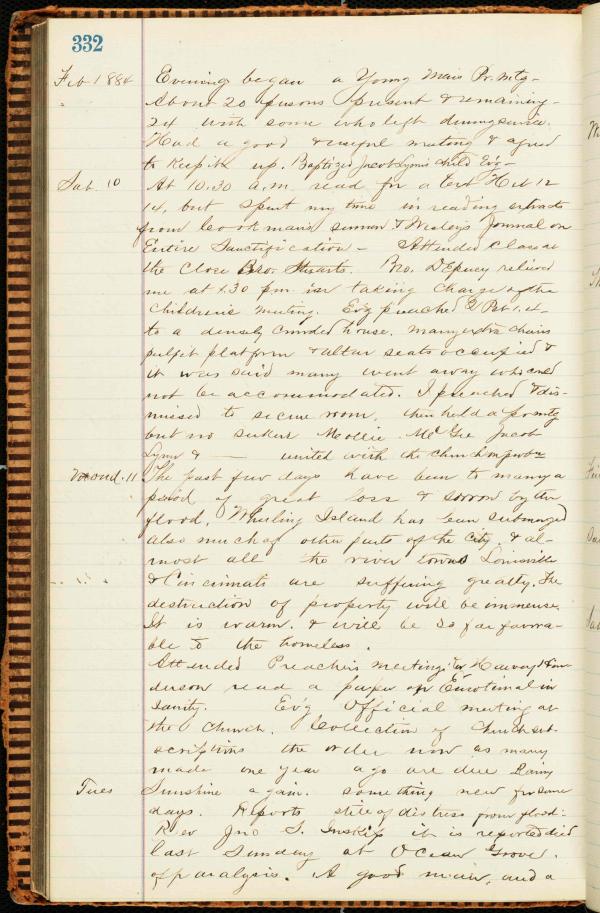 332
Feb 1884 Evening began a Young Mans Pr. Mtg -
About 20 persons present & remaining -
24 with some who left during service.
Had a good & useful meeting & agreed
to keep it up. Baptized Jacob Lynn's child Evg -
Sab 10 At 10.30 a.m. read for a text Heb 12
14, but spent my time in reading extracts
from Bookman's sermon & Wesley's Journal on
Entire Sanctification - Attended Class at
the close Bro. Stuarts. Bro. relieved
me at 1.30 pm in taking charge of the
Childrens meeting. Ev'g preached 2 Pet 1.
to a densely crowded house. many extra chairs
pulpit platform & altar seats occupied &
it was said many went away who could
not be accommodated. I preached & dis-
missed to secure room, then held a pr mtg
but no seekers Mollie McGee Jacob
Lynn & — united with the church
11 The past few days have been to many a
period of great loss & sorrow by the
flood. Wheeling Island has been submerged
also much of other parts of the City. & al-
most all the river towns Louisville
& Cincinnati are suffering greatly. The
destruction of property will be immense.
It is warm. & will be so far favora-
ble to the homeless.
Attended Preachers meeting. Harvey Hen-
derson read a paper on Emotional in
sanity. Ev'g Official meeting at
the Church. Collection of Church sub-
scriptions the order now as many
made one year ago are due Rainy
Tues Sunshine again. something new for some
days. Reports still of distress from flood -
Rev Jno S. Inskip it is reported died
last Sunday at Ocean Grove.
of paralysis. A good man, and a